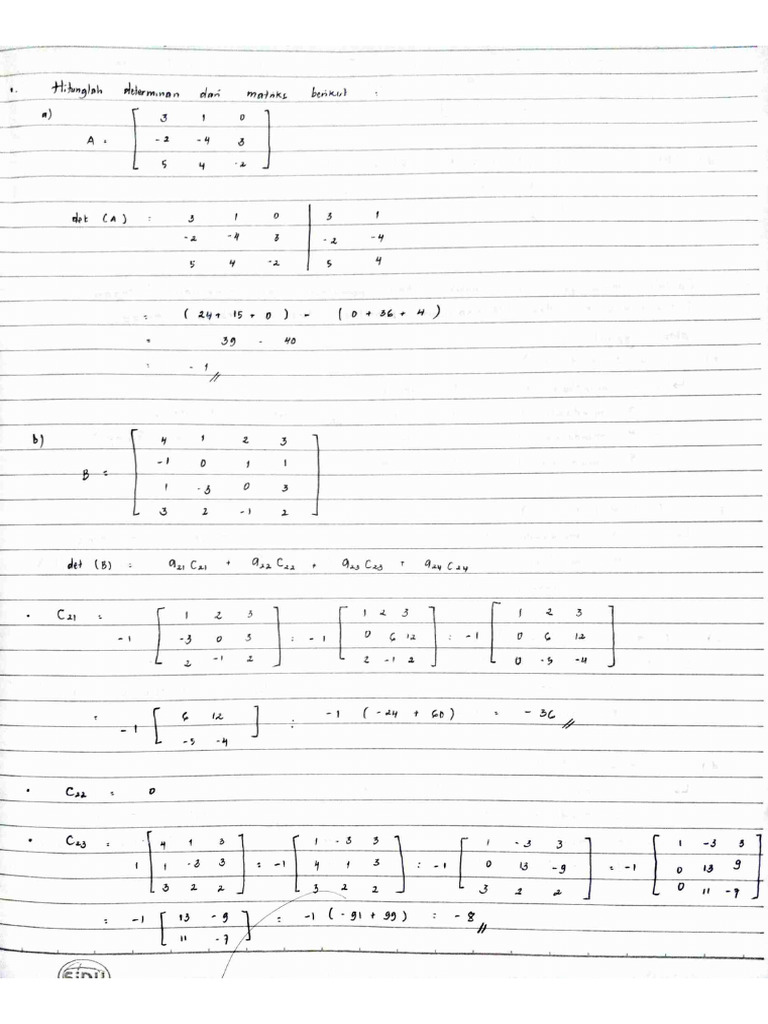 1. Hitunglah determinan dari matriks berikut :
a)
A = [ 3 1 0
-2 -4 3
5 4 -2 ]
det (A) : 3 1 0 | 3 1
-2 -4 3 | -2 -4
5 4 -2 | 5 4
= (24 + 15 + 0) - (0 + 36 + 4)
= 39 - 40
= -1 //
b)
B = [ 4 1 2 3
-1 0 1 1
1 -3 0 3
3 2 -1 2 ]
det (B) = a21 C21 + a22 C22 + a23 C23 + a24 C24
• C21 = -1 [ 1 2 3 ] = -1 [ 1 2 3 ] = -1 [ 1 2 3 ]
[ -3 0 3 ] [ 0 6 12 ] [ 0 6 12 ]
[ 2 -1 2 ] [ 2 -1 2 ] [ 0 -5 -4 ]
= -1 [ 6 12 ] = -1 (-24 + 60) = -36 //
[ -5 -4 ]
• C22 = 0
• C23 = 1 [ 4 1 3 ] = -1 [ 1 -3 3 ] = -1 [ 1 -3 3 ] = -1 [ 1 -3 3 ]
[ 1 -3 3 ] [ 4 1 3 ] [ 0 13 -9 ] [ 0 13 9 ]
[ 3 2 2 ] [ 3 2 2 ] [ 3 2 2 ] [ 0 11 -7 ]
= -1 [ 13 -9 ] = -1 (-91 + 99) = -8 //
[ 11 -7 ]
SiDU